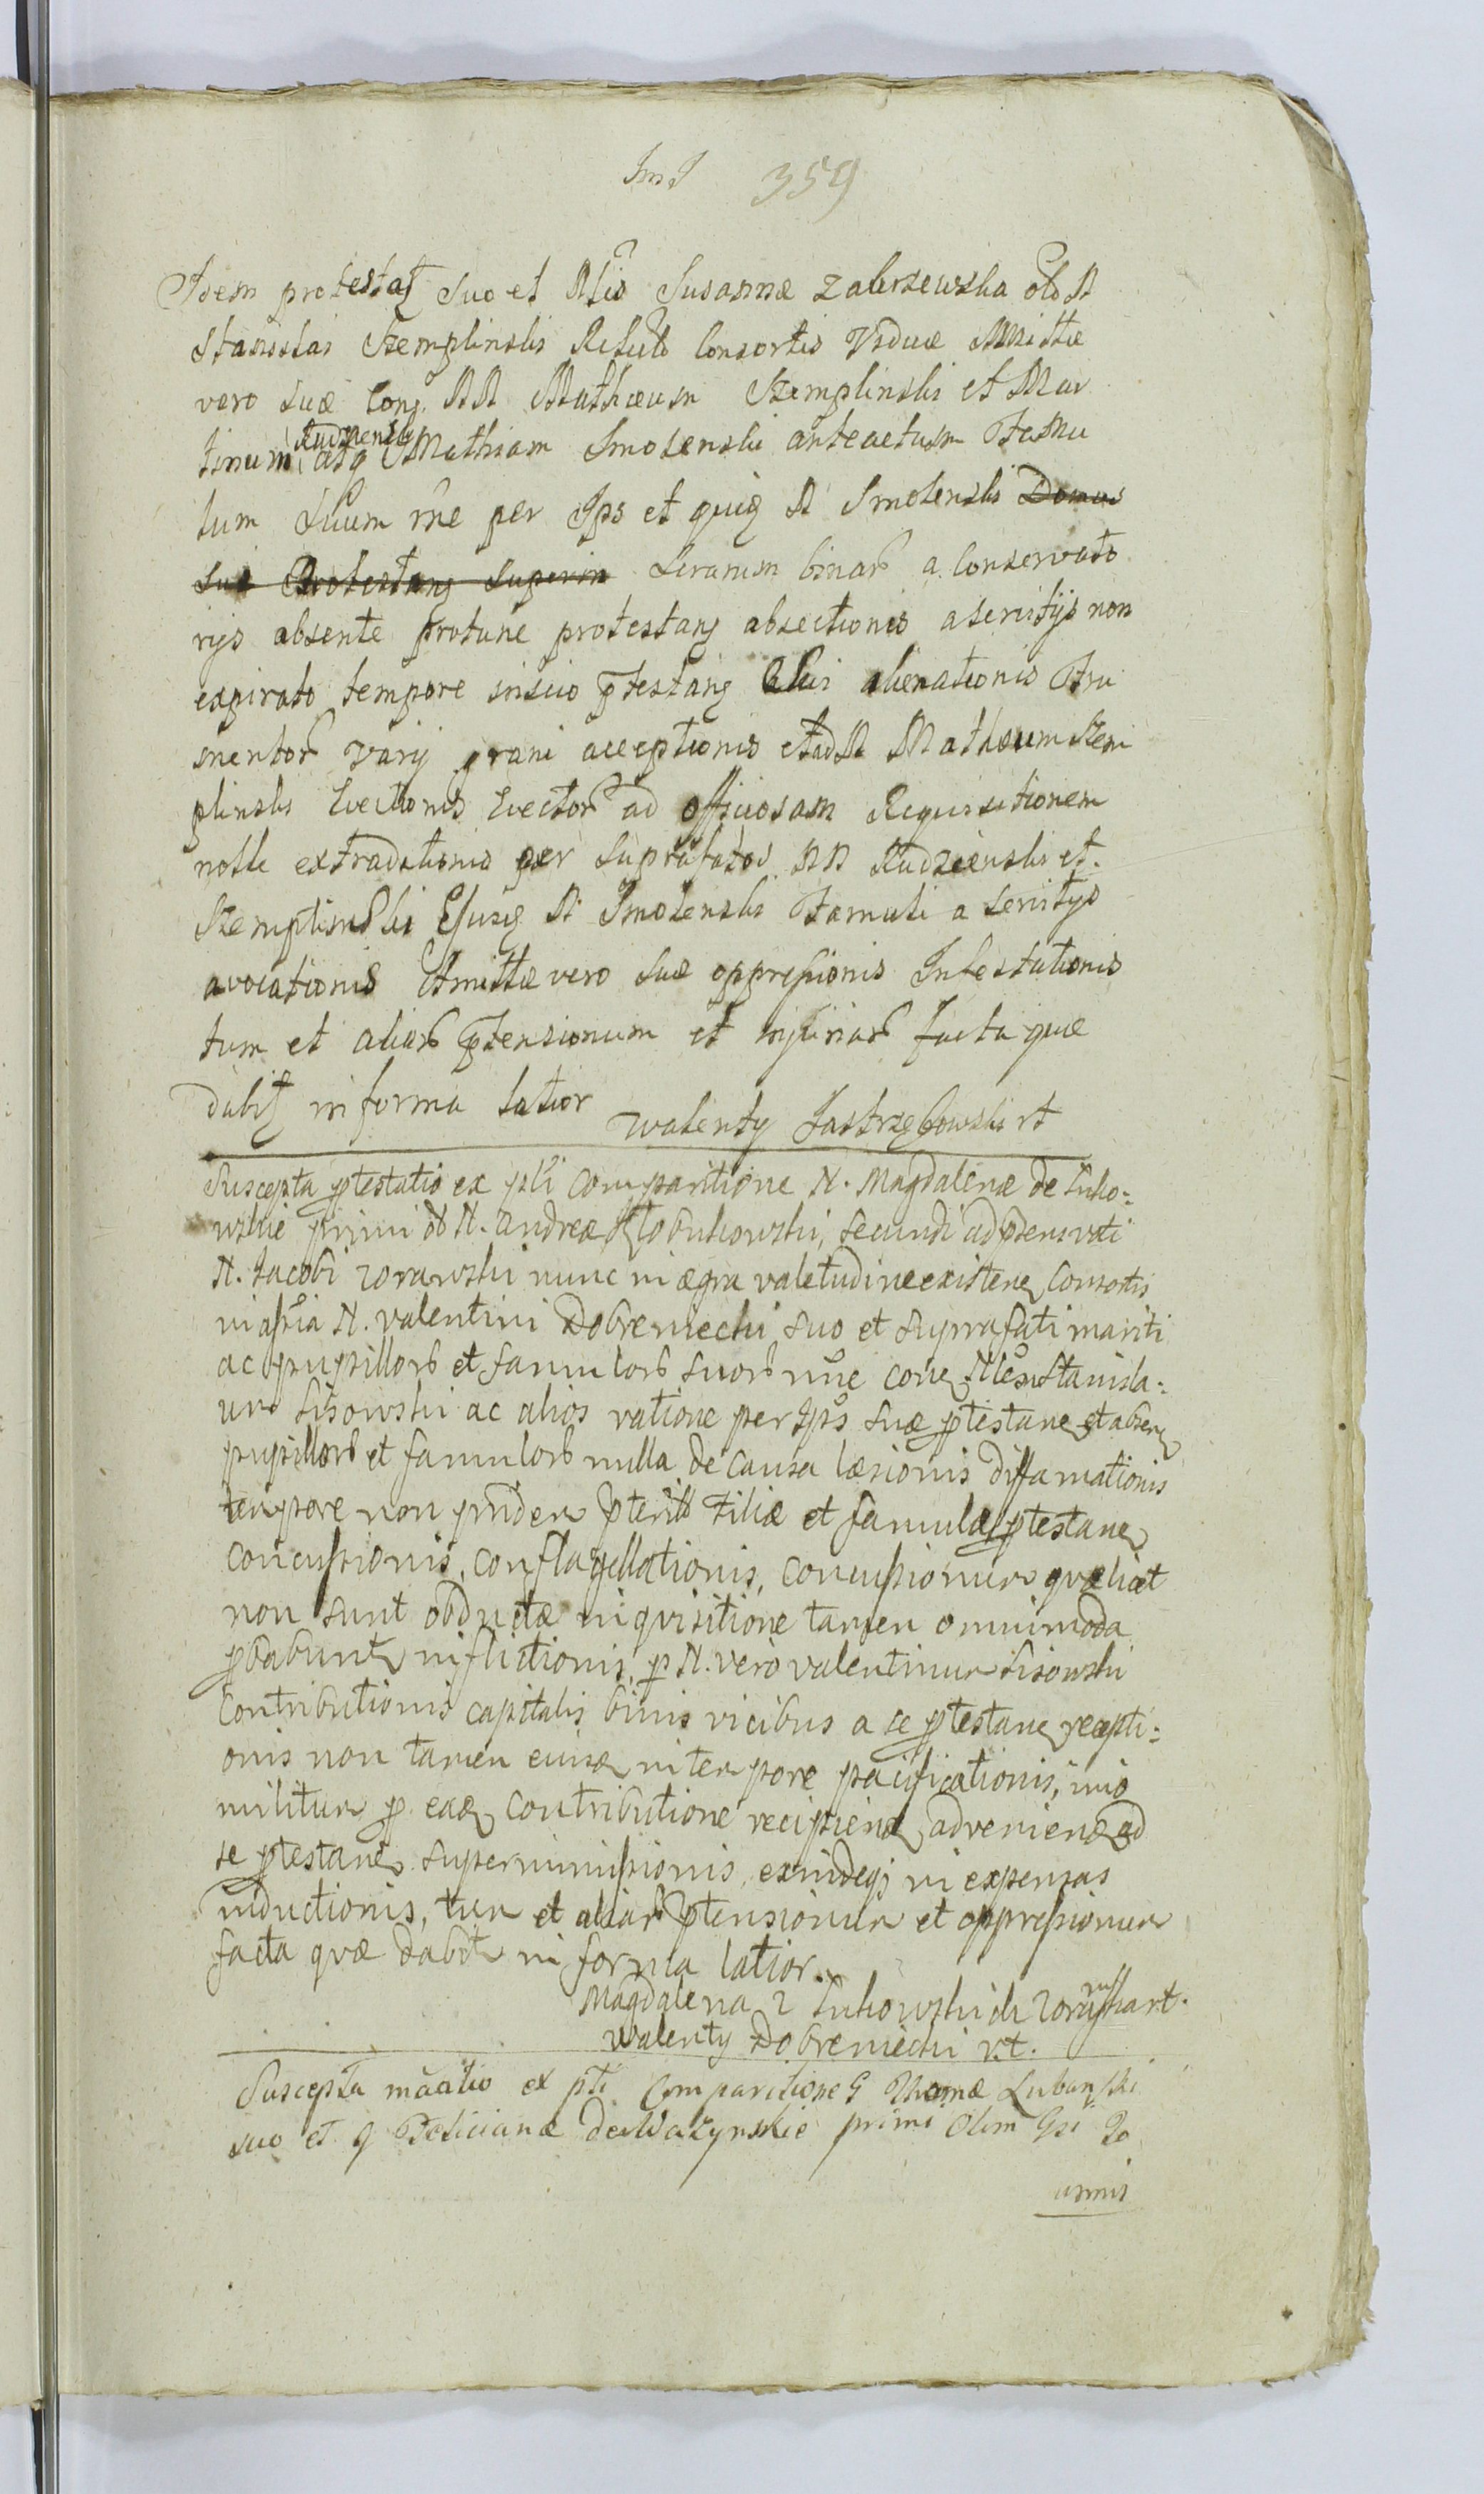 359
Idem protestat suo et Nlis Susannæ Zakrzewska olo N
Stanislai Szemplinski Relicto Consortis Viduæ Amittæ
vero suæ conq. NN Mathæum Szemplinski et Mar
tinum Rudzienski atq Mathiam Smolenski anteactum Famu
lum Suum rne per Ips et quiq N Smolenski Domus
suæ Protestanq superin Serarum binar a Conservato
rijs absente protunc protestanq absectionis a servitijs non
expirato tempore inscio ptestanq alienationis Fru
mentor varij grani acceptionis et ad N Mathæum Szem
plinski Evectionis Evector ad officiosam Requisitionem
nolle extraditionis per suprafatos NN Rudzienski et
Szemplinski Ejusq N Smolenski Famuli a servitijs
avocationis Amittæ vero suæ oppressionis Infestationis
tum et aliar ptensionum et injuriar facta quæ
dabit in forma latior Walenty Jastrzębowski rt
Suscepta ptestatio ex pti comparitione N. Magdalenæ de Luko=
wskie primi ob N. Andreæ Kłobukowski, secundi ad præns voti
N. Jacobi Zorawski nunc in ægra valetudine existenq Consortis
in assia N. Valentini Dobreniecki suo et suprafati mariti
ac pupillor et famulor suor nne conq Nlem Stanisla=
um Lisowski ac alios ratione per Ips suæ ptestanq et absenq
pupillor et famulor nulla de causa læsionis diffamationis
tempore non pridem pterito Filiæ et famulæ ptestanq
concussionis, conflagellationis, concussionum quæ licet
non sunt obductæ inquisitione tamen omnimoda
pbabunt inflictionis, p N. vero Valentinum Lisowski
Contributionis capitalis binis vicibus a se ptestanq recepti=
onis non tamen eius in tempore pacificationis, imo
militum p. eaq contributione recipienq advenienq ad
se ptestanq superimmissionis, exindeq in expensas
inductionis, tum et aliar ptensionum et oppressionum
facta quæ dabit in forma latior.
Magdalena z Lukowskich Zorawska rt.
Walenty Dobreniecki r.t.
Suscepta mãatio ex pti Comparitione G Thomæ Lubanski
suo et G Felicianæ de Ważynskie primi olim Gsi Jo
annis